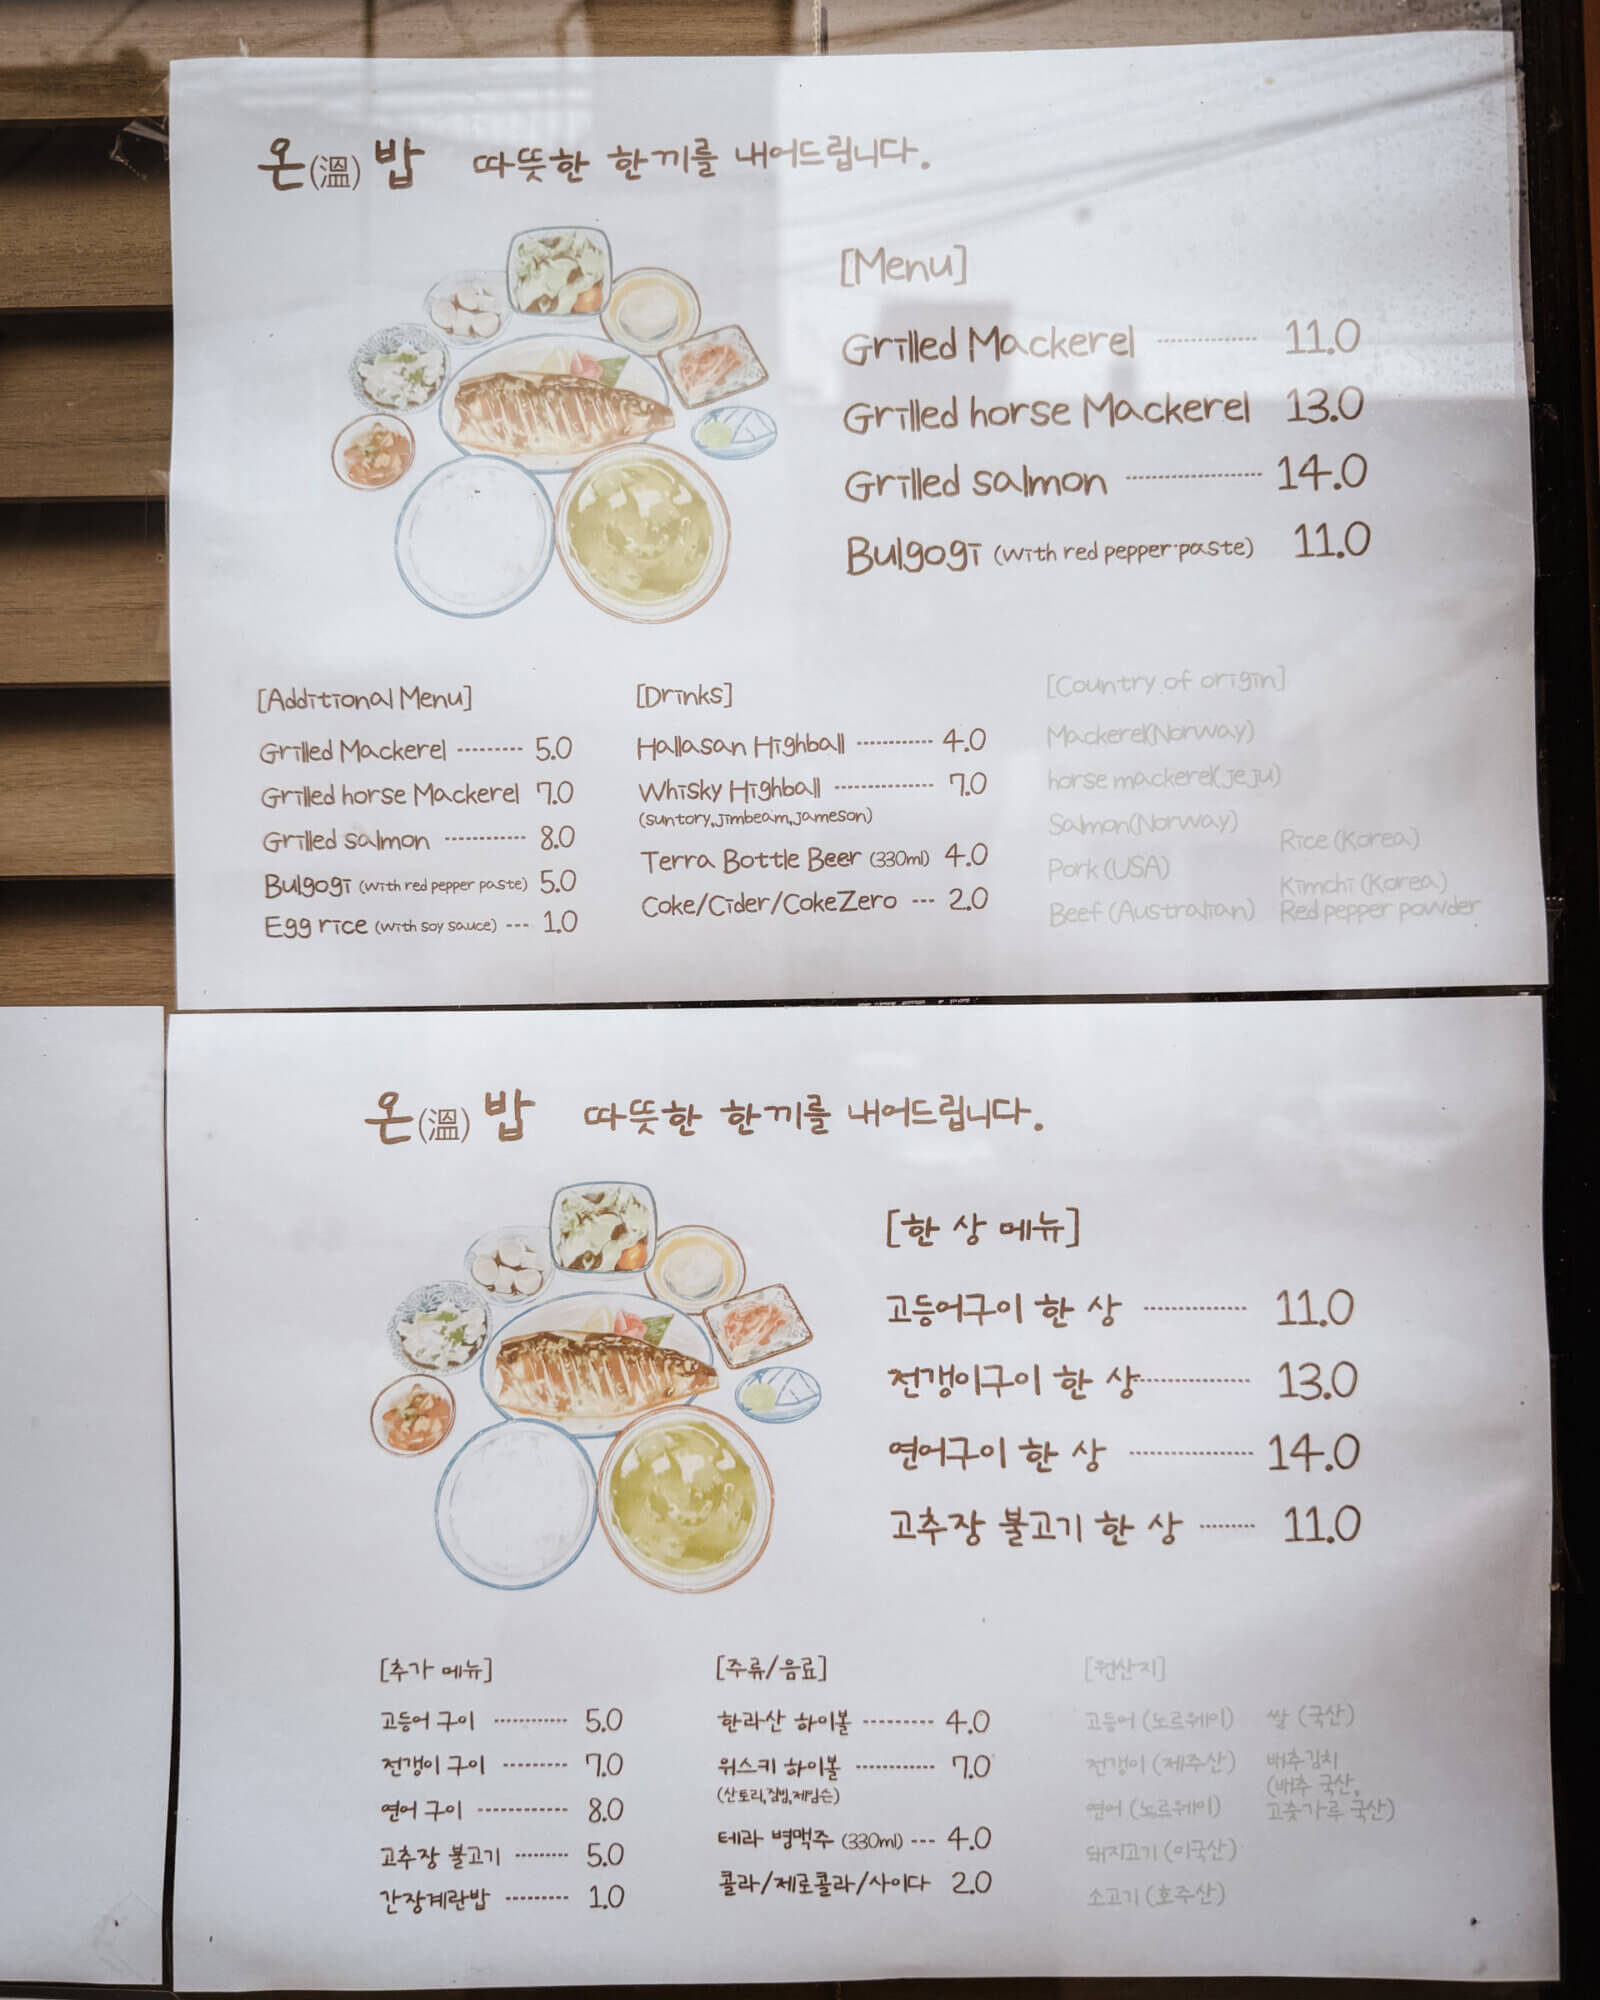 온(溫)밥 따뜻한 한끼를 내어드립니다.
[Menu]
Grilled Mackerel ---------- 11.0
Grilled horse Mackerel 13.0
Grilled salmon ---------- 14.0
Bulgogi (with red pepper paste) 11.0
[Additional Menu]
Grilled Mackerel --------- 5.0
Grilled horse Mackerel 7.0
Grilled salmon ---------- 8.0
Bulgogi (with red pepper paste) 5.0
Egg rice (with soy sauce) --- 1.0
[Drinks]
Hallasan Highball ---------- 4.0
Whisky Highball ---------- 7.0
(suntory,jimbeam,jameson)
Terra Bottle Beer (330ml) 4.0
Coke/Cider/CokeZero --- 2.0
[Country of origin]
Mackerel(Norway)
horse mackerel(jeju)
Salmon(Norway)
Pork (USA)
Beef (Australian)
Rice (Korea)
Kimchi (Korea)
Red pepper powder
온(溫)밥 따뜻한 한끼를 내어드립니다.
[한 상 메뉴]
고등어구이 한 상 ---------- 11.0
전갱이구이 한 상 ---------- 13.0
연어구이 한 상 ---------- 14.0
고추장 불고기 한 상 ------ 11.0
[추가 메뉴]
고등어 구이 ---------- 5.0
전갱이 구이 --------- 7.0
연어 구이 ---------- 8.0
고추장 불고기 -------- 5.0
간장계란밥 --------- 1.0
[주류/음료]
한라산 하이볼 --------- 4.0
위스키 하이볼 ---------- 7.0
(산토리,짐빔,제임슨)
테라 병맥주 (330ml) --- 4.0
콜라/제로콜라/사이다 2.0
[원산지]
고등어 (노르웨이)
전갱이 (제주산)
연어 (노르웨이)
돼지고기 (미국산)
소고기 (호주산)
쌀 (국산)
배추김치
(배추 국산,
고춧가루 국산)